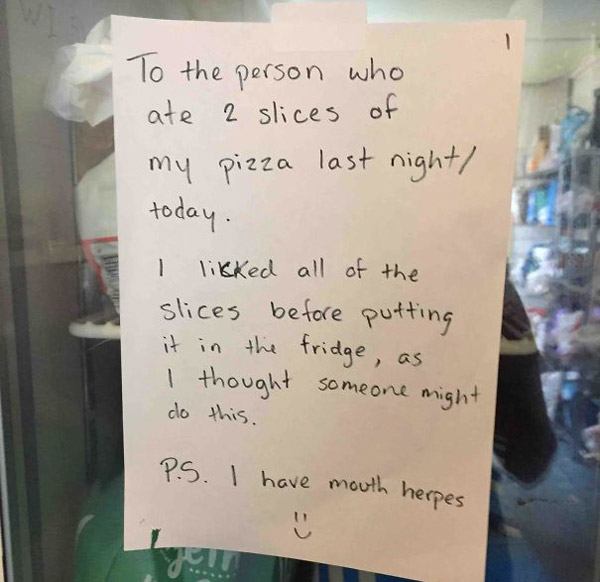 To the person who
ate 2 slices of
my pizza last night/
today.
I likked all of the
slices before putting
it in the fridge, as
I thought someone might
do this.
P.S. I have mouth herpes